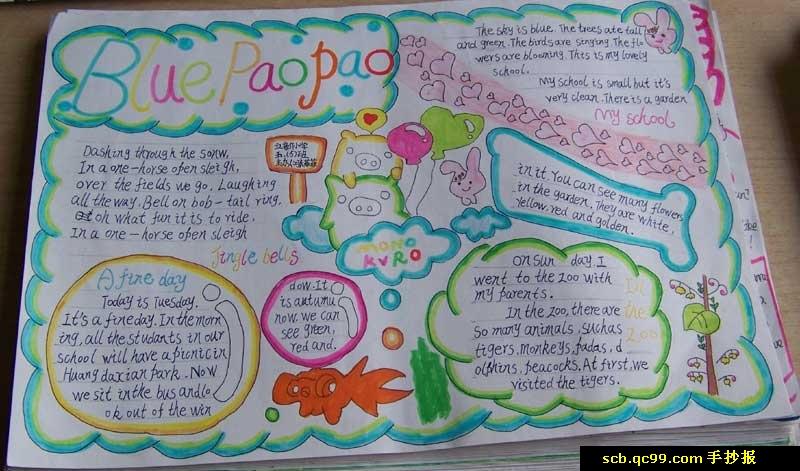 Blue Paopao
The sky is blue. The trees ate tall
and green. The birds are singing. The flo
wers are blooming. This is my lovely
school.
My school is small but it's
very clean. There is a garden
My school
in it. You can see many flowers
in the garden. They are white,
Yellow, red and golden.
Dashing through the sonw,
In a one-horse open sleigh,
over the fields we go, Laughing
all the way. Bell on bob-tail ring,
oh what fun it is to ride,
In a one-horse open sleigh
Jingle bells
MONO
KURO
A fine day
Today is Tuesday.
It's a fineday. In the morn
ing, all the studants in our
school will have a picnic in
Huang daxian park. Now
we sit inthe bus andlo
ok out of the win
dow. It
is autumu
now. we can
see green,
red and.
on sun day I
went to the zoo with
my parents.
In the zoo, there are
so many animals, suchas
tigers, monkeys, padas, d
olphins, peacocks. At first, we
visited the tigers.
In
the
Zoo
scb.qc99.com 手抄报